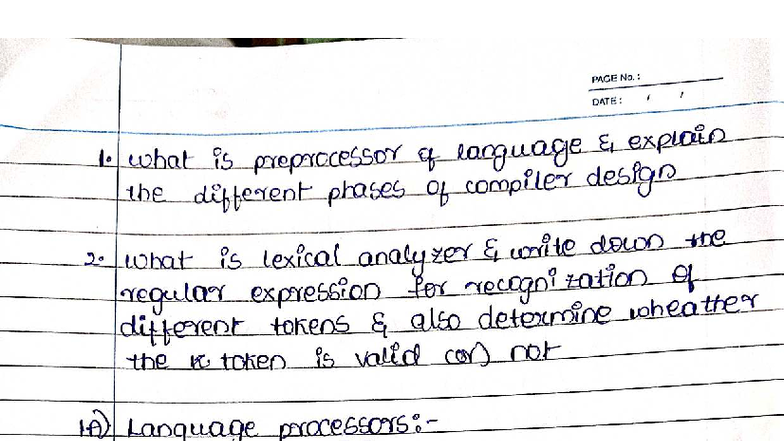 PAGE No. :
DATE : / /
1. what is preprocessor of language & explain
the different phases of compiler design
2. what is lexical analyzer & write down the
regular expression for recognization of
different tokens & also determine wheather
the token is valid (or) not
1A) Language processors:-